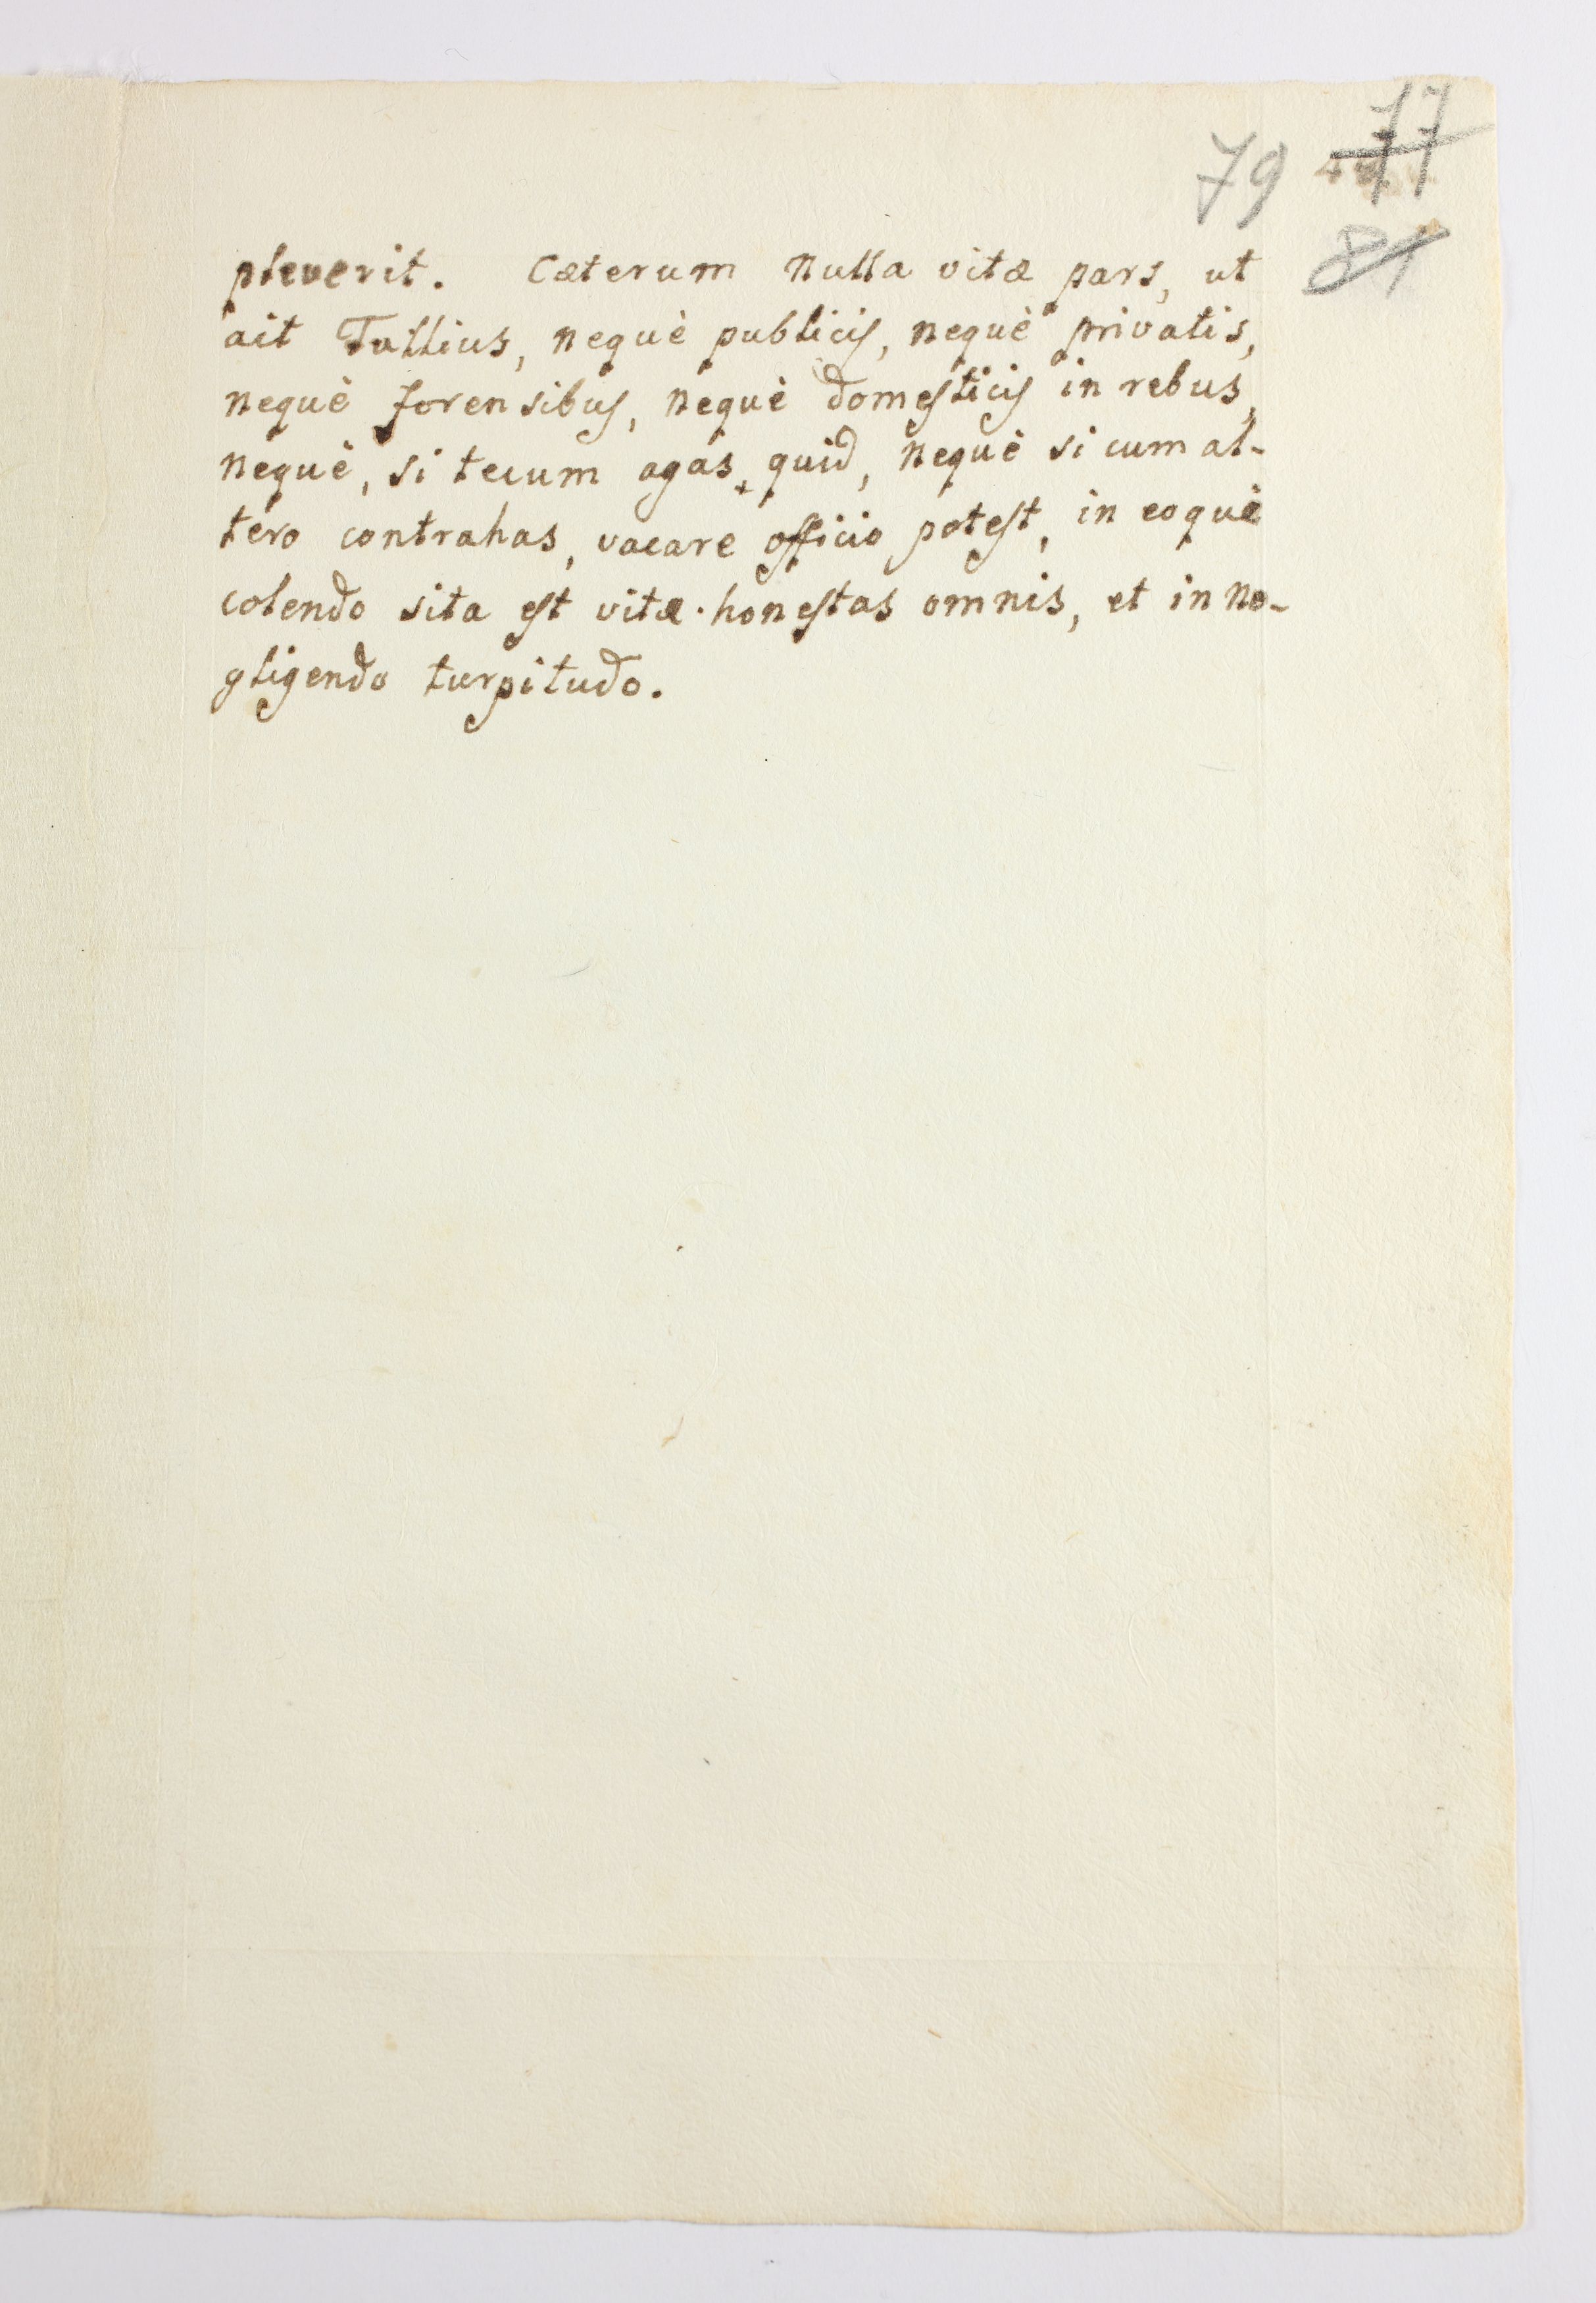 79 77
81
pleverit. Cæterum nulla vitæ pars, ut
ait Tullius, nequè publicis, nequè privatis,
nequè forensibus, nequè domesticis in rebus,
nequè, si tecum agas quid, nequè si cum al-
tero contrahas, vacare officio potest, in eoquè
colendo sita est vitæ honestas omnis, et in ne-
gligendo turpitudo.